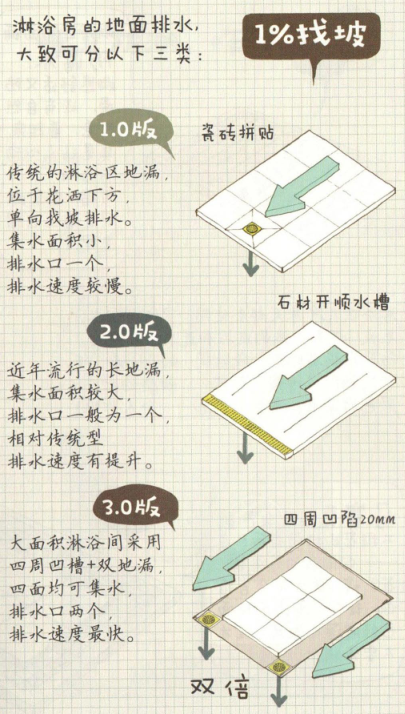 淋浴房的地面排水,
大致可分以下三类:
1%找坡
1.0版
瓷砖拼贴
传统的淋浴区地漏,
位于花洒下方,
单向找坡排水。
集水面积小,
排水口一个,
排水速度较慢。
石材开顺水槽
2.0版
近年流行的长地漏,
集水面积较大,
排水口一般为一个,
相对传统型
排水速度有提升。
3.0版
四周凹陷20mm
大面积淋浴间采用
四周凹槽+双地漏,
四面均可集水,
排水口两个,
排水速度最快。
双倍